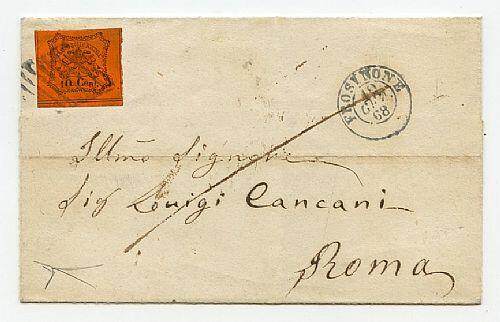 10 Cent.
FROSINONE
68
Illmo Signore
Sig Luigi Cancani
Roma